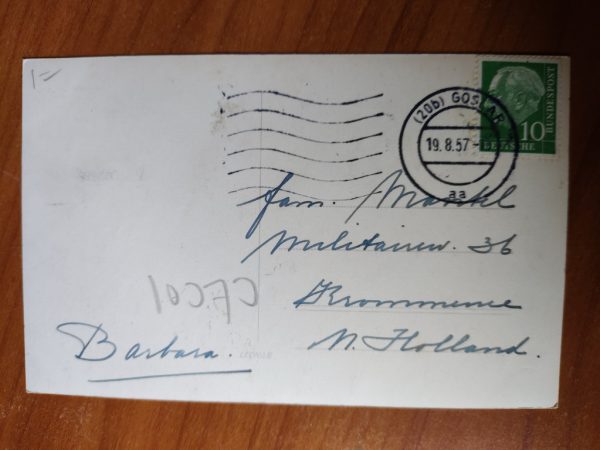 1=
(20b) GOSLAR
19.8.57-
aa
10
DEUTSCHE
BUNDESPOST
fam. Markl
Militairew. 36
Krommenie
N. Holland.
Barbara.
CFC01